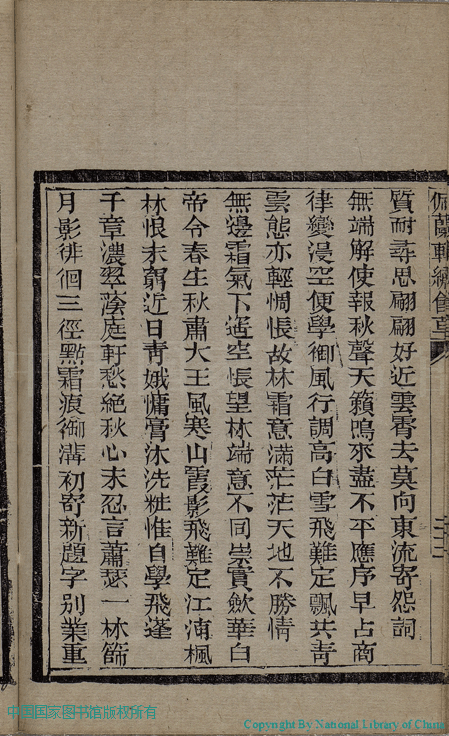 佩蘭軒繡餘草
二十二
質耐尋思翩翩好近雲霄去莫向東流寄怨詞
無端解使報秋聲天籟鳴來盡不平應序早占商
律變漫空便學御風行調高白雪飛難定飄共青
雲態亦輕惆悵故林霜意滿茫茫天地不勝情
無邊霜氣下遙空悵望林端意不同崇實歛華白
帝令春生秋肅大王風寒山霞影飛難定江浦楓
林恨未窮近日青娥慵膏沐洗粧惟自學飛蓬
千章濃翠蔭庭軒愁絶秋心未忍言蕭瑟一林篩
月影徘徊三徑點霜痕御溝初寄新題字別業重
中国国家图书馆版权所有
Copyright By National Library of China